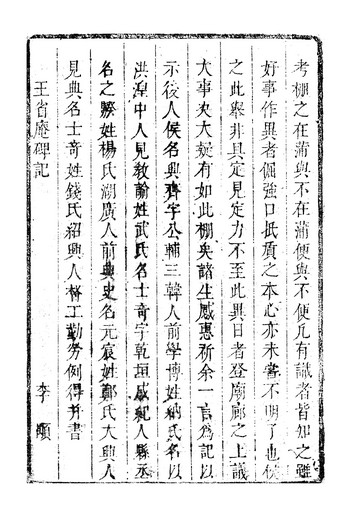 考棚之在蒲與不在蒲便與不便凡有識者皆知之雖
好事作異者倔強口抵質之本心亦未嘗不明了也侯
之此舉非具定見定力不至此異日者登廟廊之上議
大事决大疑有如此棚矣諸生感惠祈余一言為記以
示後人侯名興齊字公輔三韓人前學博姓納氏名以
洪湟中人見教諭姓武氏名士奇字乾垣咸紀人縣丞
名之勝姓楊氏湖廣人前典史名元宸姓鄭氏大興人
見典名士奇姓錢氏紹興人督工勤勞例得并書
王省庵碑記
李顒